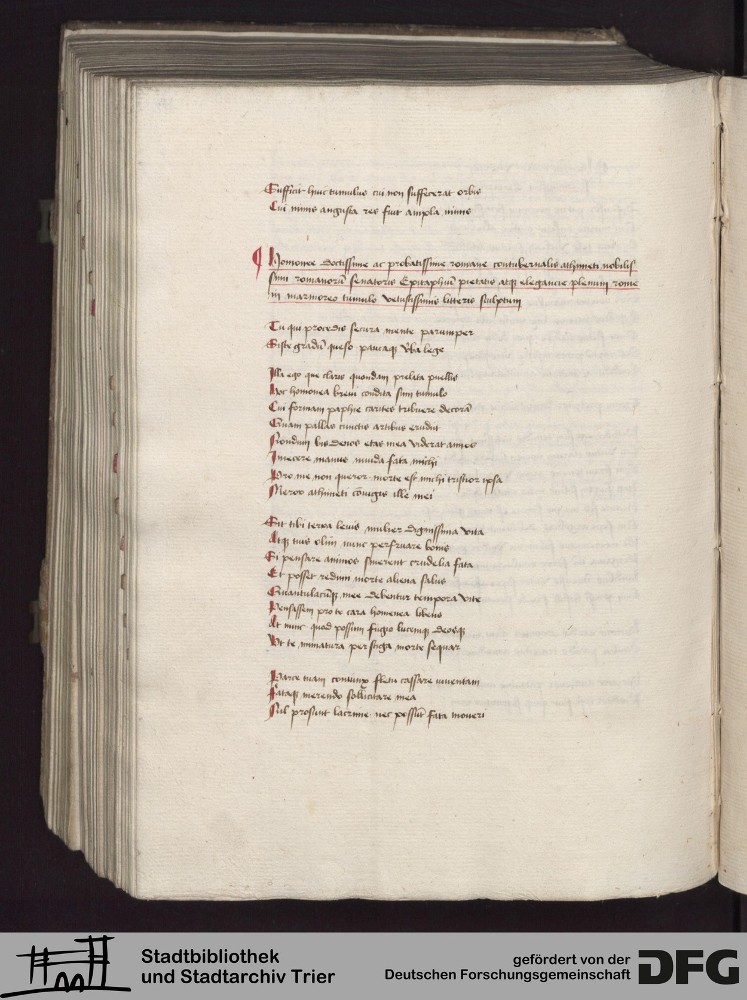 Sufficit huic tumulus cui non suffecerat orbis
Cui nimis angusta res fuit ampla nimis
Homonee doctissime ac probatissime romane contubernalis athimeti nobilis
simi romanorū senatoris Epitaphiū pietatis atqꝫ elegancie plenum rome
in marmoreo tumulo vetustissimis litteris sculptum
Tu qui procedis secura mente parumper
Siste gradū queso paucaqꝫ v̄ba lege
Illa ego que claris quondam prelata puellis
Hoc homonea brevi condita sum tumulo
Cui formam paphie carites tribuere decorā
Quam pallas cunctis artibus erudiit
Nondum bis denos etas mea viderat annos
Iniecere manus invida fata michi
Pro me non queror morte est michi tristior ipsa
Meror athimeti cōiugis ille mei
Sit tibi terra levis mulier dignissima vita
Atqꝫ tuis olim nunc perfruare bonis
Si pensare animos sinerent crudelia fata
Et posset redimi morte aliena salus
Quantulacūqꝫ mee debentur tempora vite
Pensassem pro te cara homonea libens
At nunc quod possum fugio lucemqꝫ deosqꝫ
Ut te inmatura per stiga morte sequar
Parce tuam coniunx fletu cassare iuventam
Fataqꝫ merendo sollicitare mea
Nil prosunt lacrime nec possūt fata moveri
Stadtbibliothek
und Stadtarchiv Trier
gefördert von der
Deutschen Forschungsgemeinschaft
DFG